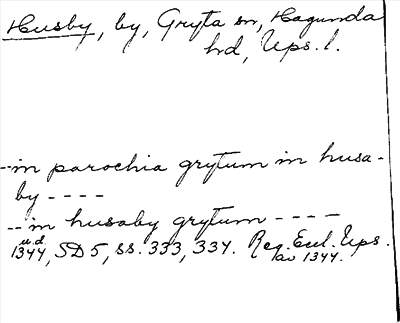 Husby, by, Gryta sn, Hagunda
hd, Ups. l.
--in parochia grytum in husa-
by ----
-- in husaby grytum ----
u.d.
1344, SD 5, ss. 333, 334. Reg. Eccl. Ups.
av 1344.